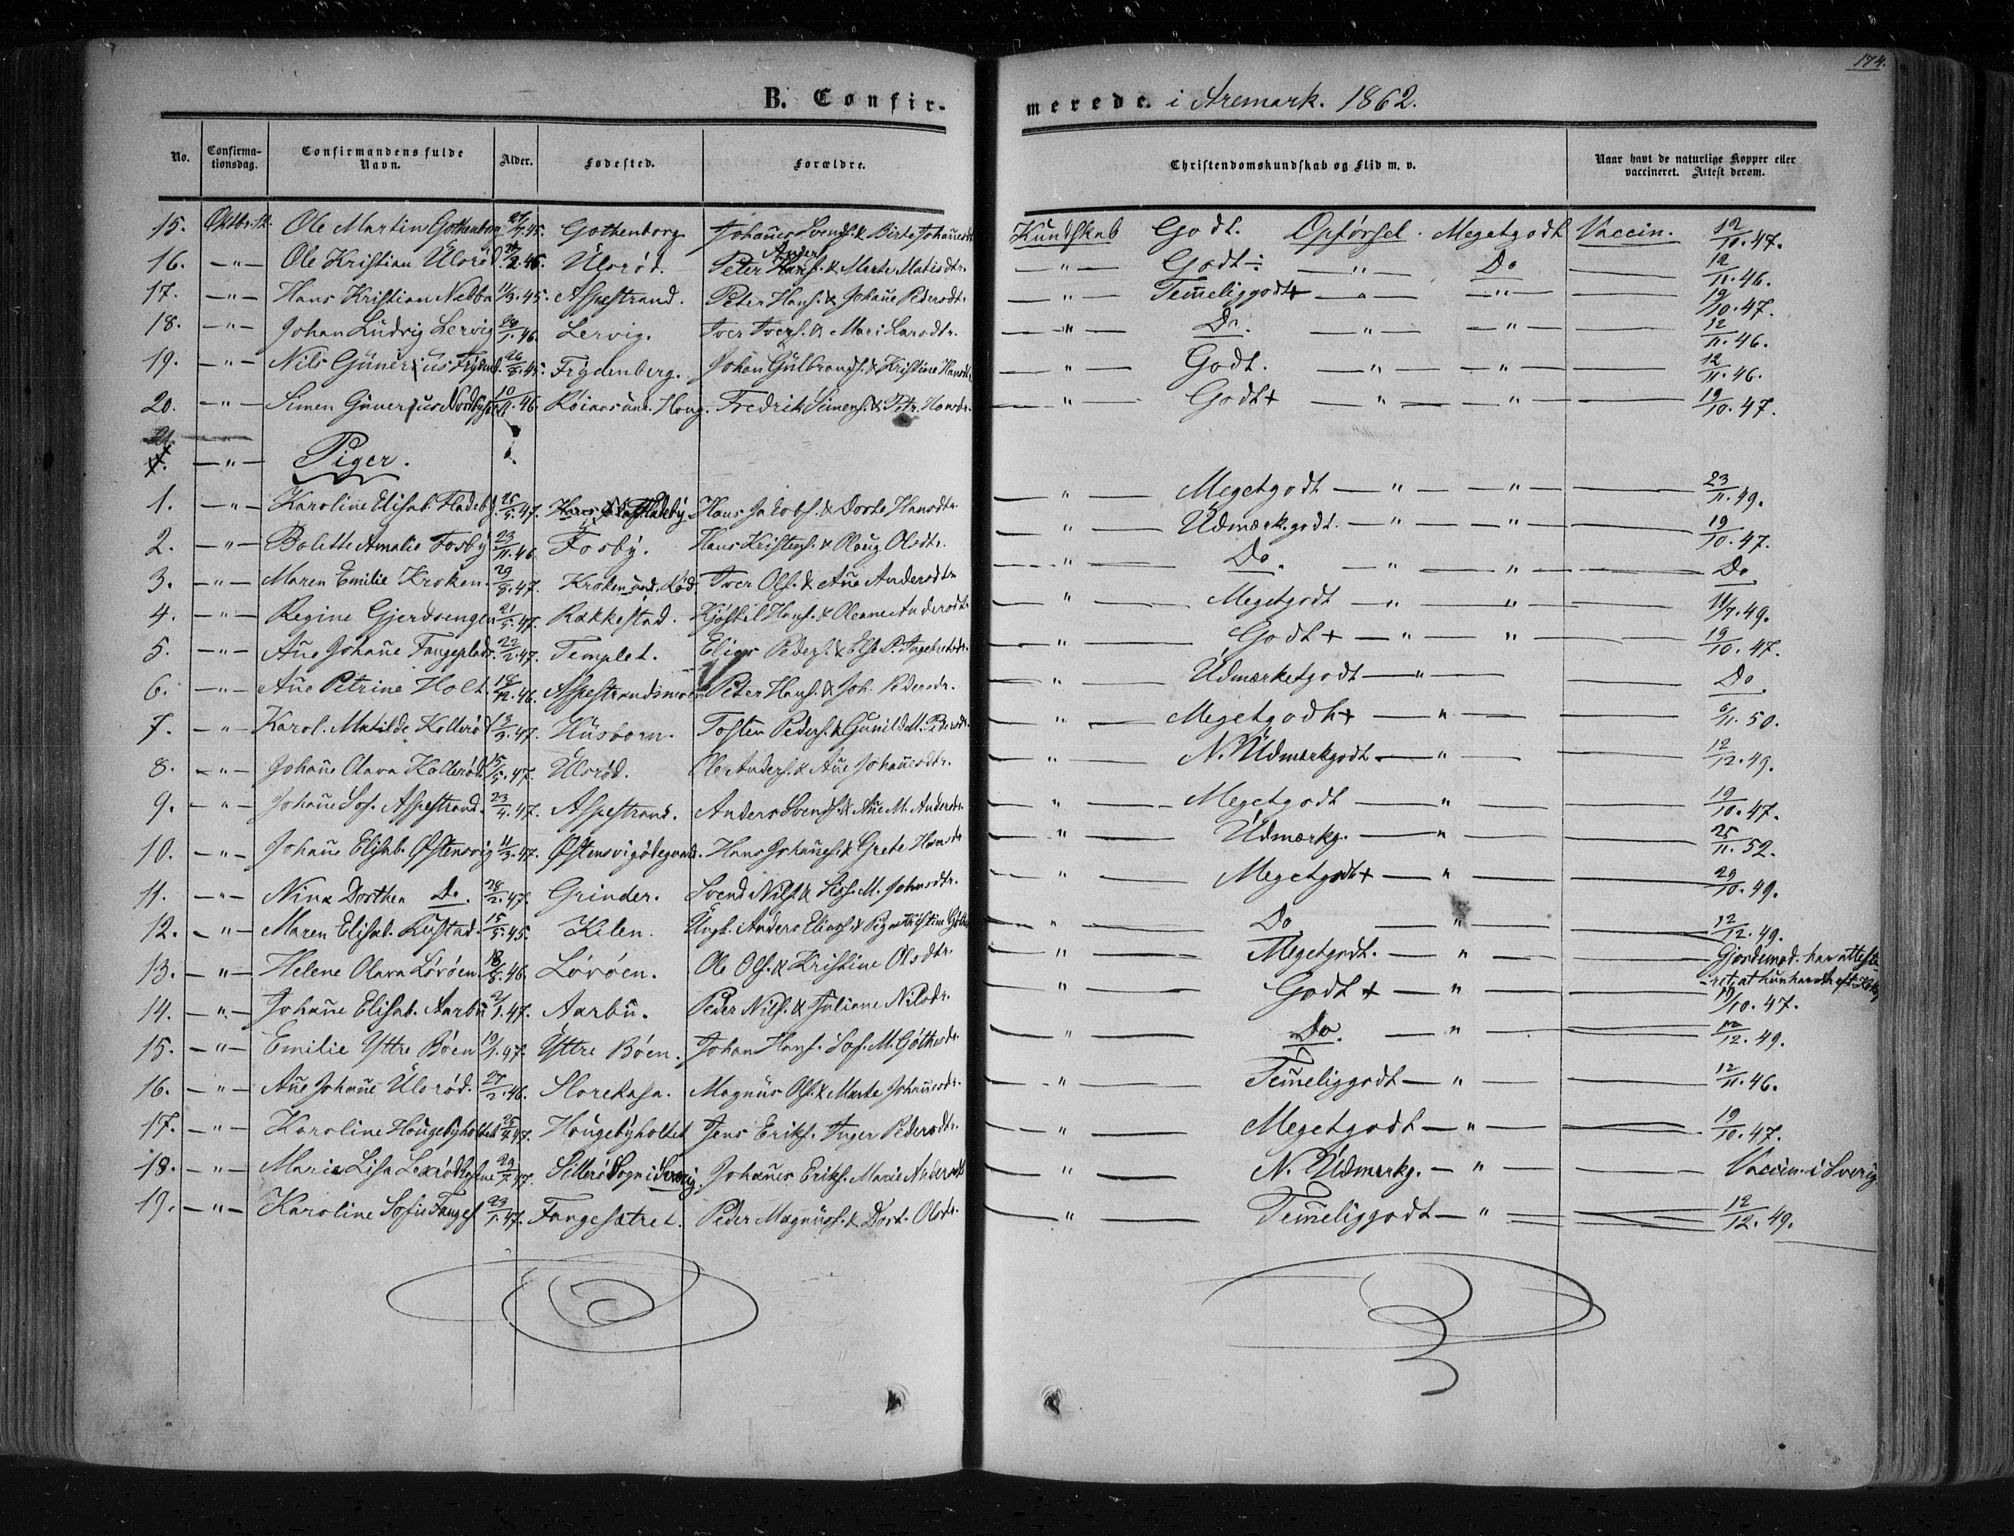 174.
B. Confirmerede. i Aremark. 1862.
No. Confirmationsdag. Confirmandens fulde Navn. Alder. Fødested. Forældre. Christendomskundskab og Flid m. v. Naar havt de naturlige Kopper eller vaccineret. Attest derom.
15. Oktbr. Ole Martin Gothenborg 45. Gothenborg Johañes Svends. & Birte Johañesdt. Kundskab Godt. Opførsel. Megetgodt Vaccin. 12/10.47.
16. —"— Ole Kristian Ülsrød 2.46. Ülsrød. Peter Anders. & Marte Matisdtr. —"— Godt÷ " Do 12/11.46.
17. —"— Hans Kristian Nebba 11/3.45. Aspestrand. Peter Hans. & Johañe Pedersdt. —"— Temeliggodt+ —"— —"— 19/10.47.
18. —"— Johan Ludvig Lervig 1.46. Lervig. Iver Ivers. & Mari Larsdtr. —"— Do. " " 12/11.46.
19. —"— Nils Gunerius Frydenb. 26/5.45. Frydenberg. Johan Gulbrands. & Kristine Hansdt. —"— Godt. —"— —"— 12/11.46.
20. —"— Simen Gunerius 46. und. Houg. Fredrik Simens. & Hansdtr. —"— Godt+ —"— —"— 19/10.47.
21.
—"— Piger.
1. —"— Karoline Elisab. Fladeby 25/5.47. Fladeby Hans Jakobs. & Dorte Hansdtr. —"— Megetgodt —"— —"— 23/11.49.
2. —"— Bolette Amalie Fosby 23/11.46. Fosby. Hans Kristens. & Olaug Olsdtr. —"— Üdmærk.godt. —"— —"— 19/10.47.
3. —"— Maren Emilie Kroken. 29/5.47. Kroken und. Rød. Iver Ols. & Añe Andersdtr —"— Do. —"— " Do
4. —"— Regine Gjerdsengen 21/5.47. Rakkestad. Kjøstel Hans. & Oleane Andersdt. —"— Megetgodt —"— " 11/7.49.
5. —"— Añe Johañe Fangeplads. 22/2.47. Templet. Elias Peders. & Else P. Ingebretsdt. —"— Godt+ —"— " 19/10.47.
6. —"— Añe Petrine Holt 18/12.46. Aspestrandsmoen Peter Hans. & Joh. Pedersdtr. —"— Üdmærketgodt —"— Do.
7. —"— Karol. Matilde Kollerød 47. Husborn. Tosten Peders. & Gunild M. Pedersdt. —"— Megetgodt+ —"— 6/11.50.
8. —"— Johañe Olava Kollerød 15/5.47. Ülsrød. Ole Anders. & Añe Johañesdtr. N. Üdmærkgodt —"— 12/12.49.
9. —"— Johañe Sof. Aspestrand. 23/4.47. Aspestrand. Anders Svends. & Añe M. Andersdt. —"— Megetgodt —"— 19/10.47.
10. —"— Johañe Elisab. Østensvig 11/3.47. Østensvigødegaard. Hans Johañes. & Grete Hansdt —"— Üdmærkg. —"— 25/11.52.
11. —"— Nina Dorthea Do. 28/2.47. Grinder. Svend Nils. & Sof. M. Johnsdtr. —"— Megetgodt+ —"— 29/10.49.
12. —"— Maren Elisab. Kustad. 15/5.45. Kilen. Üngk. Anders Elias. & Pige Kristine —"— Do " 12/12.49.
13. —"— Helene Olava Lövöen 18/8.46. Lövöen. Ole Ols. & Kristine Olsdtr. —"— Megetgodt. —"— Gjordemod. har atteste
ret, at hun har
14. —"— Johañe Elisab. Aarbu 2/1.47. Aarbu. Peder Nils. & Juliane Nilsdr. " Godt+ —"— 19/10.47.
15. —"— Emilie Yttre Böen 19/1.47. Yttre Böen. Johan Hans. Sof. M. Göthesdr. " Do. —"— 12/12.49.
16. —"— Añe Johañe Ülsrød. 27/2.46. Slorekasa. Magnus Ols. & Marte Johañesdr. —"— Temeliggodt —"— 12/11.46.
17. —"— Karoline Hougebyholtet 25/4.47. Hougebyholtet Jens Eriks. Inger Pedersdtr. —"— Megetgodt —"— 19/10.47.
18. —"— Marie Lisa 29/7.47. Sillerø Sogn i Sverrig. Johañes Eriks. Marie Andersdt —"— N. Üdmærkg. —"— Vaccin. i Sverig
19. —"— Karoline Sofie Fanges 23/1.47. Fangesætret. Peder Magnus. & Dort. Olsdtr. —"— Temeliggodt —"— 12/12.49.